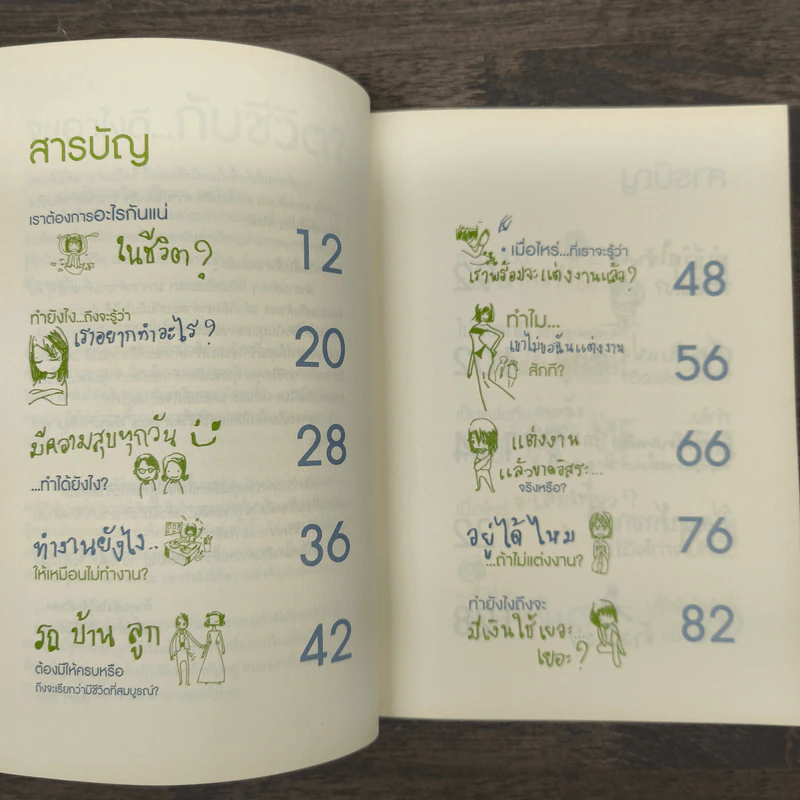 สารบัญ
เราต้องการอะไรกันแน่
ในชีวิต?
12
ทำยังไง...ถึงจะรู้ว่า
เราอยากทำอะไร?
20
มีความสุขทุกวัน
...ทำได้ยังไง?
28
ทำงานยังไง..
ให้เหมือนไม่ทำงาน?
36
รถ บ้าน ลูก
ต้องมีให้ครบหรือ
ถึงจะเรียกว่ามีชีวิตที่สมบูรณ์?
42
เมื่อไหร่...ที่เราจะรู้ว่า
เราพร้อมจะแต่งงานแล้ว?
48
ทำไม...
เขาไม่ขอฉันแต่งงาน
สักที?
56
แต่งงาน
แล้วขาดอิสระ...
จริงหรือ?
66
อยู่ได้ไหม
...ถ้าไม่แต่งงาน?
76
ทำยังไงถึงจะ
มีเงินใช้เยอะ..
เยอะ?
82